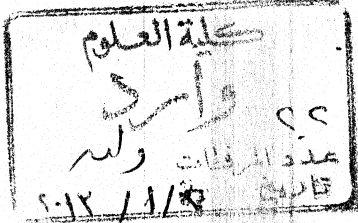 كلية العلوم
وارد
٢٢
عدد المرفقات
تاريخ / ١ / ٢٠١٣